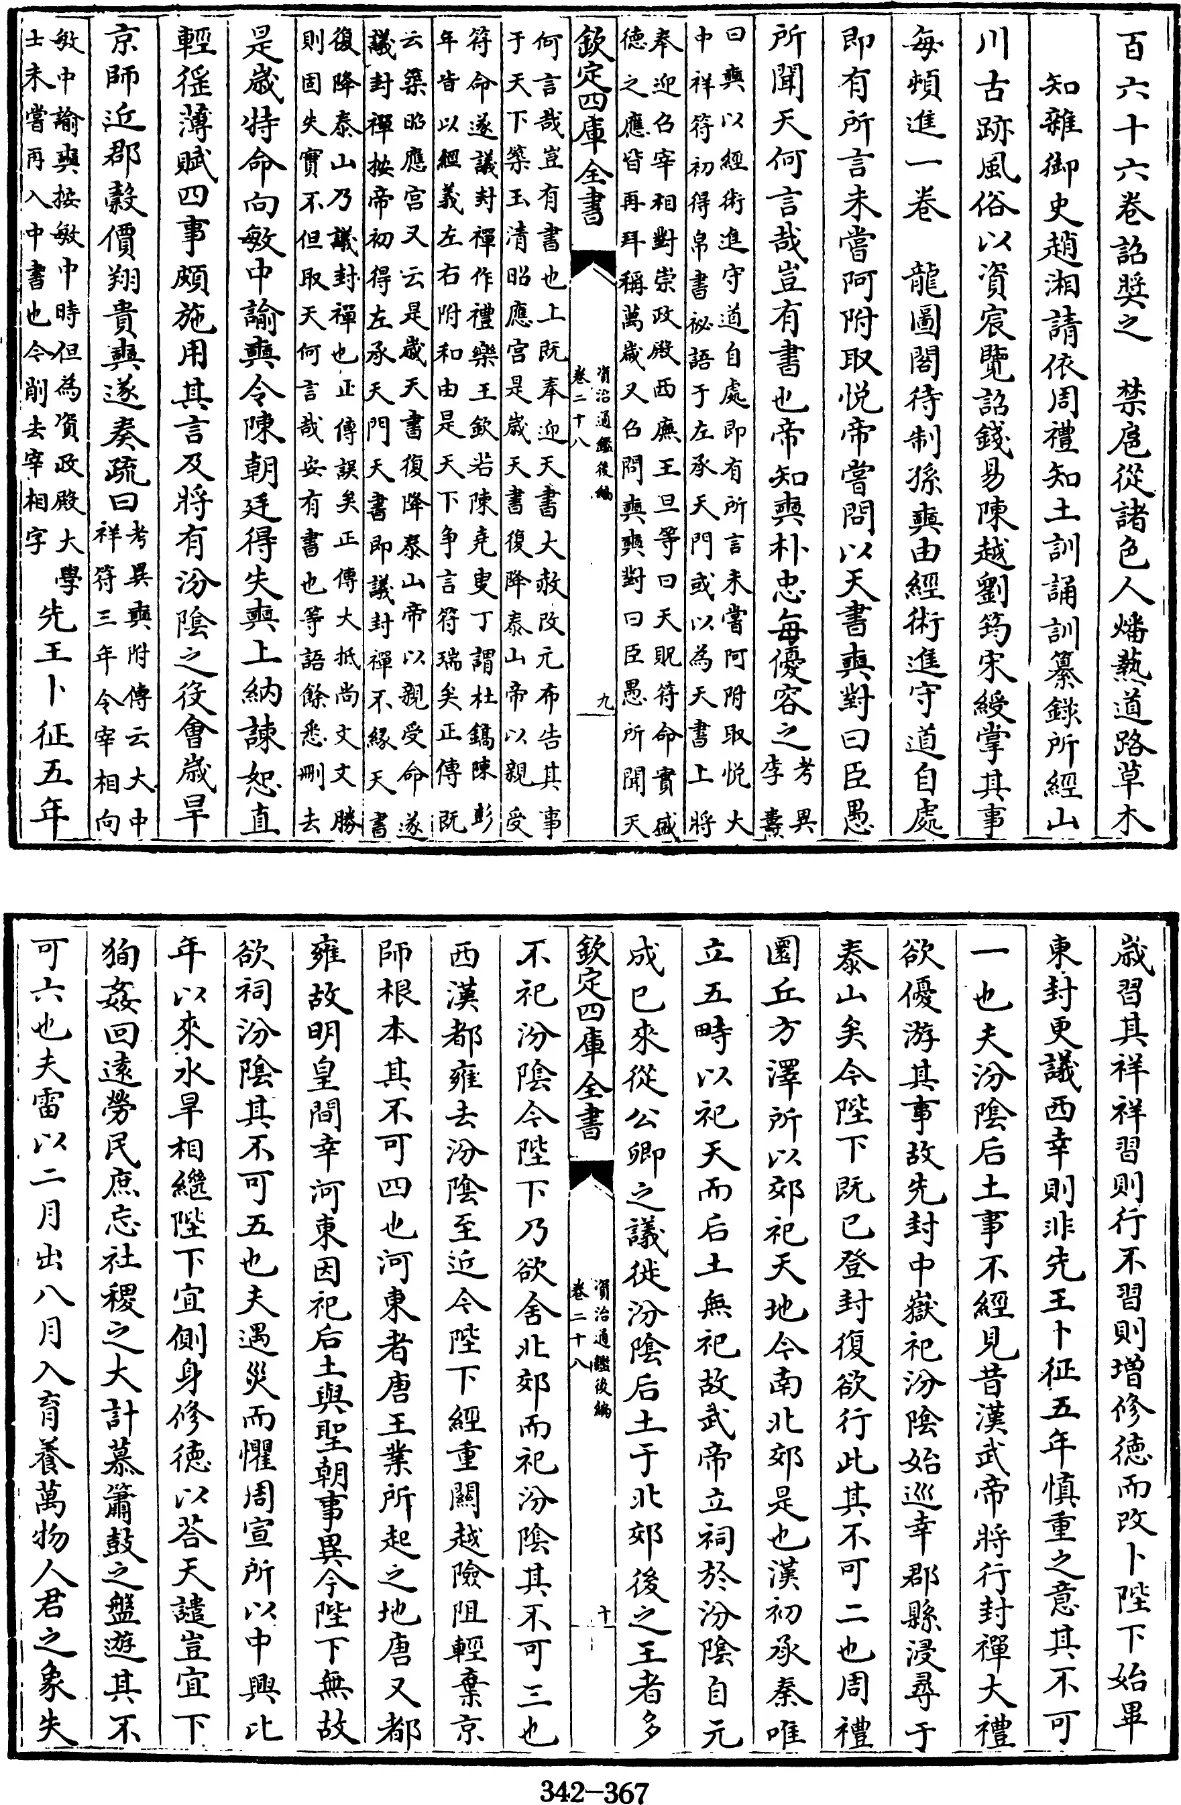 百六十六卷詔奬之　禁扈從諸色人燔爇道路草木
知雜御史趙湘請依周禮知土訓誦訓纂錄所經山
川古跡風俗以資宸覽詔錢易陳越劉筠宋綬掌其事
每頓進一卷　龍圖閣待制孫奭由經術進守道自處
即有所言未嘗阿附取悅帝嘗問以天書奭對曰臣愚
所聞天何言哉豈有書也帝知奭朴忠每優容之考異
李燾
曰奭以經術進守道自處即有所言未嘗阿附取悅大
中祥符初得帛書秘語于左承天門或以為天書上將
奉迎召宰相對崇政殿西廡王旦等曰天貺符命實盛
德之應皆再拜稱萬歲又召問奭奭對曰臣愚所聞天
欽定四庫全書
資治通鑑後編
卷二十八
九
何言哉豈有書也上既奉迎天書大赦改元布告其事
于天下築玉清昭應宮是歲天書復降泰山帝以親受
符命遂議封禪作禮樂王欽若陳堯叟丁謂杜鎬陳彭
年皆以經義左右附和由是天下爭言符瑞矣正傳既
云築昭應宮又云是歲天書復降泰山帝以親受命遂
議封禪按帝初得左承天門天書即議封禪不緣天書
復降泰山乃議封禪也正傳誤矣正傳大抵尚文文勝
則固失實不但取天何言哉安有書也等語餘悉刪去
是歲特命向敏中諭奭令陳朝廷得失奭上納諫恕直
輕徭薄賦四事頗施用其言及將有汾陰之役會歲旱
京師近郡穀價翔貴奭遂奏疏曰考異奭附傳云大中
祥符三年令宰相向
敏中諭奭按敏中時但為資政殿大學
士未嘗再入中書也今削去宰相字先王卜征五年
歲習其祥祥習則行不習則增修德而改卜陛下始畢
東封更議西幸則非先王卜征五年慎重之意其不可
一也夫汾陰后土事不經見昔漢武帝將行封禪大禮
欲優游其事故先封中嶽祀汾陰始巡幸郡縣浸尋于
泰山矣今陛下既已登封復欲行此其不可二也周禮
圜丘方澤所以郊祀天地今南北郊是也漢初承秦唯
立五畤以祀天而后土無祀故武帝立祠於汾陰自元
成已來從公卿之議徙汾陰后土于北郊後之王者多
欽定四庫全書
資治通鑑後編
卷二十八
十
不祀汾陰今陛下乃欲舍北郊而祀汾陰其不可三也
西漢都雍去汾陰至近今陛下經重關越險阻輕棄京
師根本其不可四也河東者唐王業所起之地唐又都
雍故明皇間幸河東因祀后土與聖朝事異今陛下無故
欲祠汾陰其不可五也夫遇災而懼周宣所以中興比
年以來水旱相繼陛下宜側身修德以荅天譴豈宜下
狥姦回遠勞民庶忘社稷之大計慕簫鼓之盤遊其不
可六也夫雷以二月出八月入育養萬物人君之象失
342-367